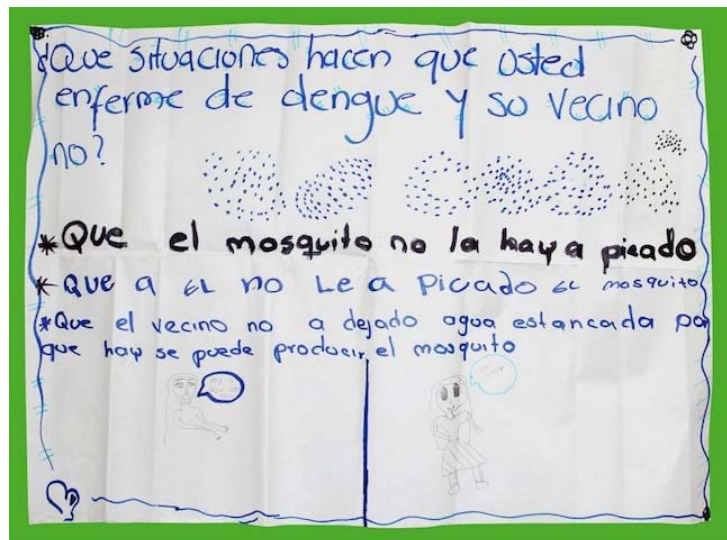 ¿Que situaciones hacen que usted
enferme de dengue y su vecino
no?
*Que el mosquito no la haya picado
*Que a EL no Le a Picado EL mosquito
*Que el vecino no a dejado agua estancada por
que hay se puede producir el mosquito